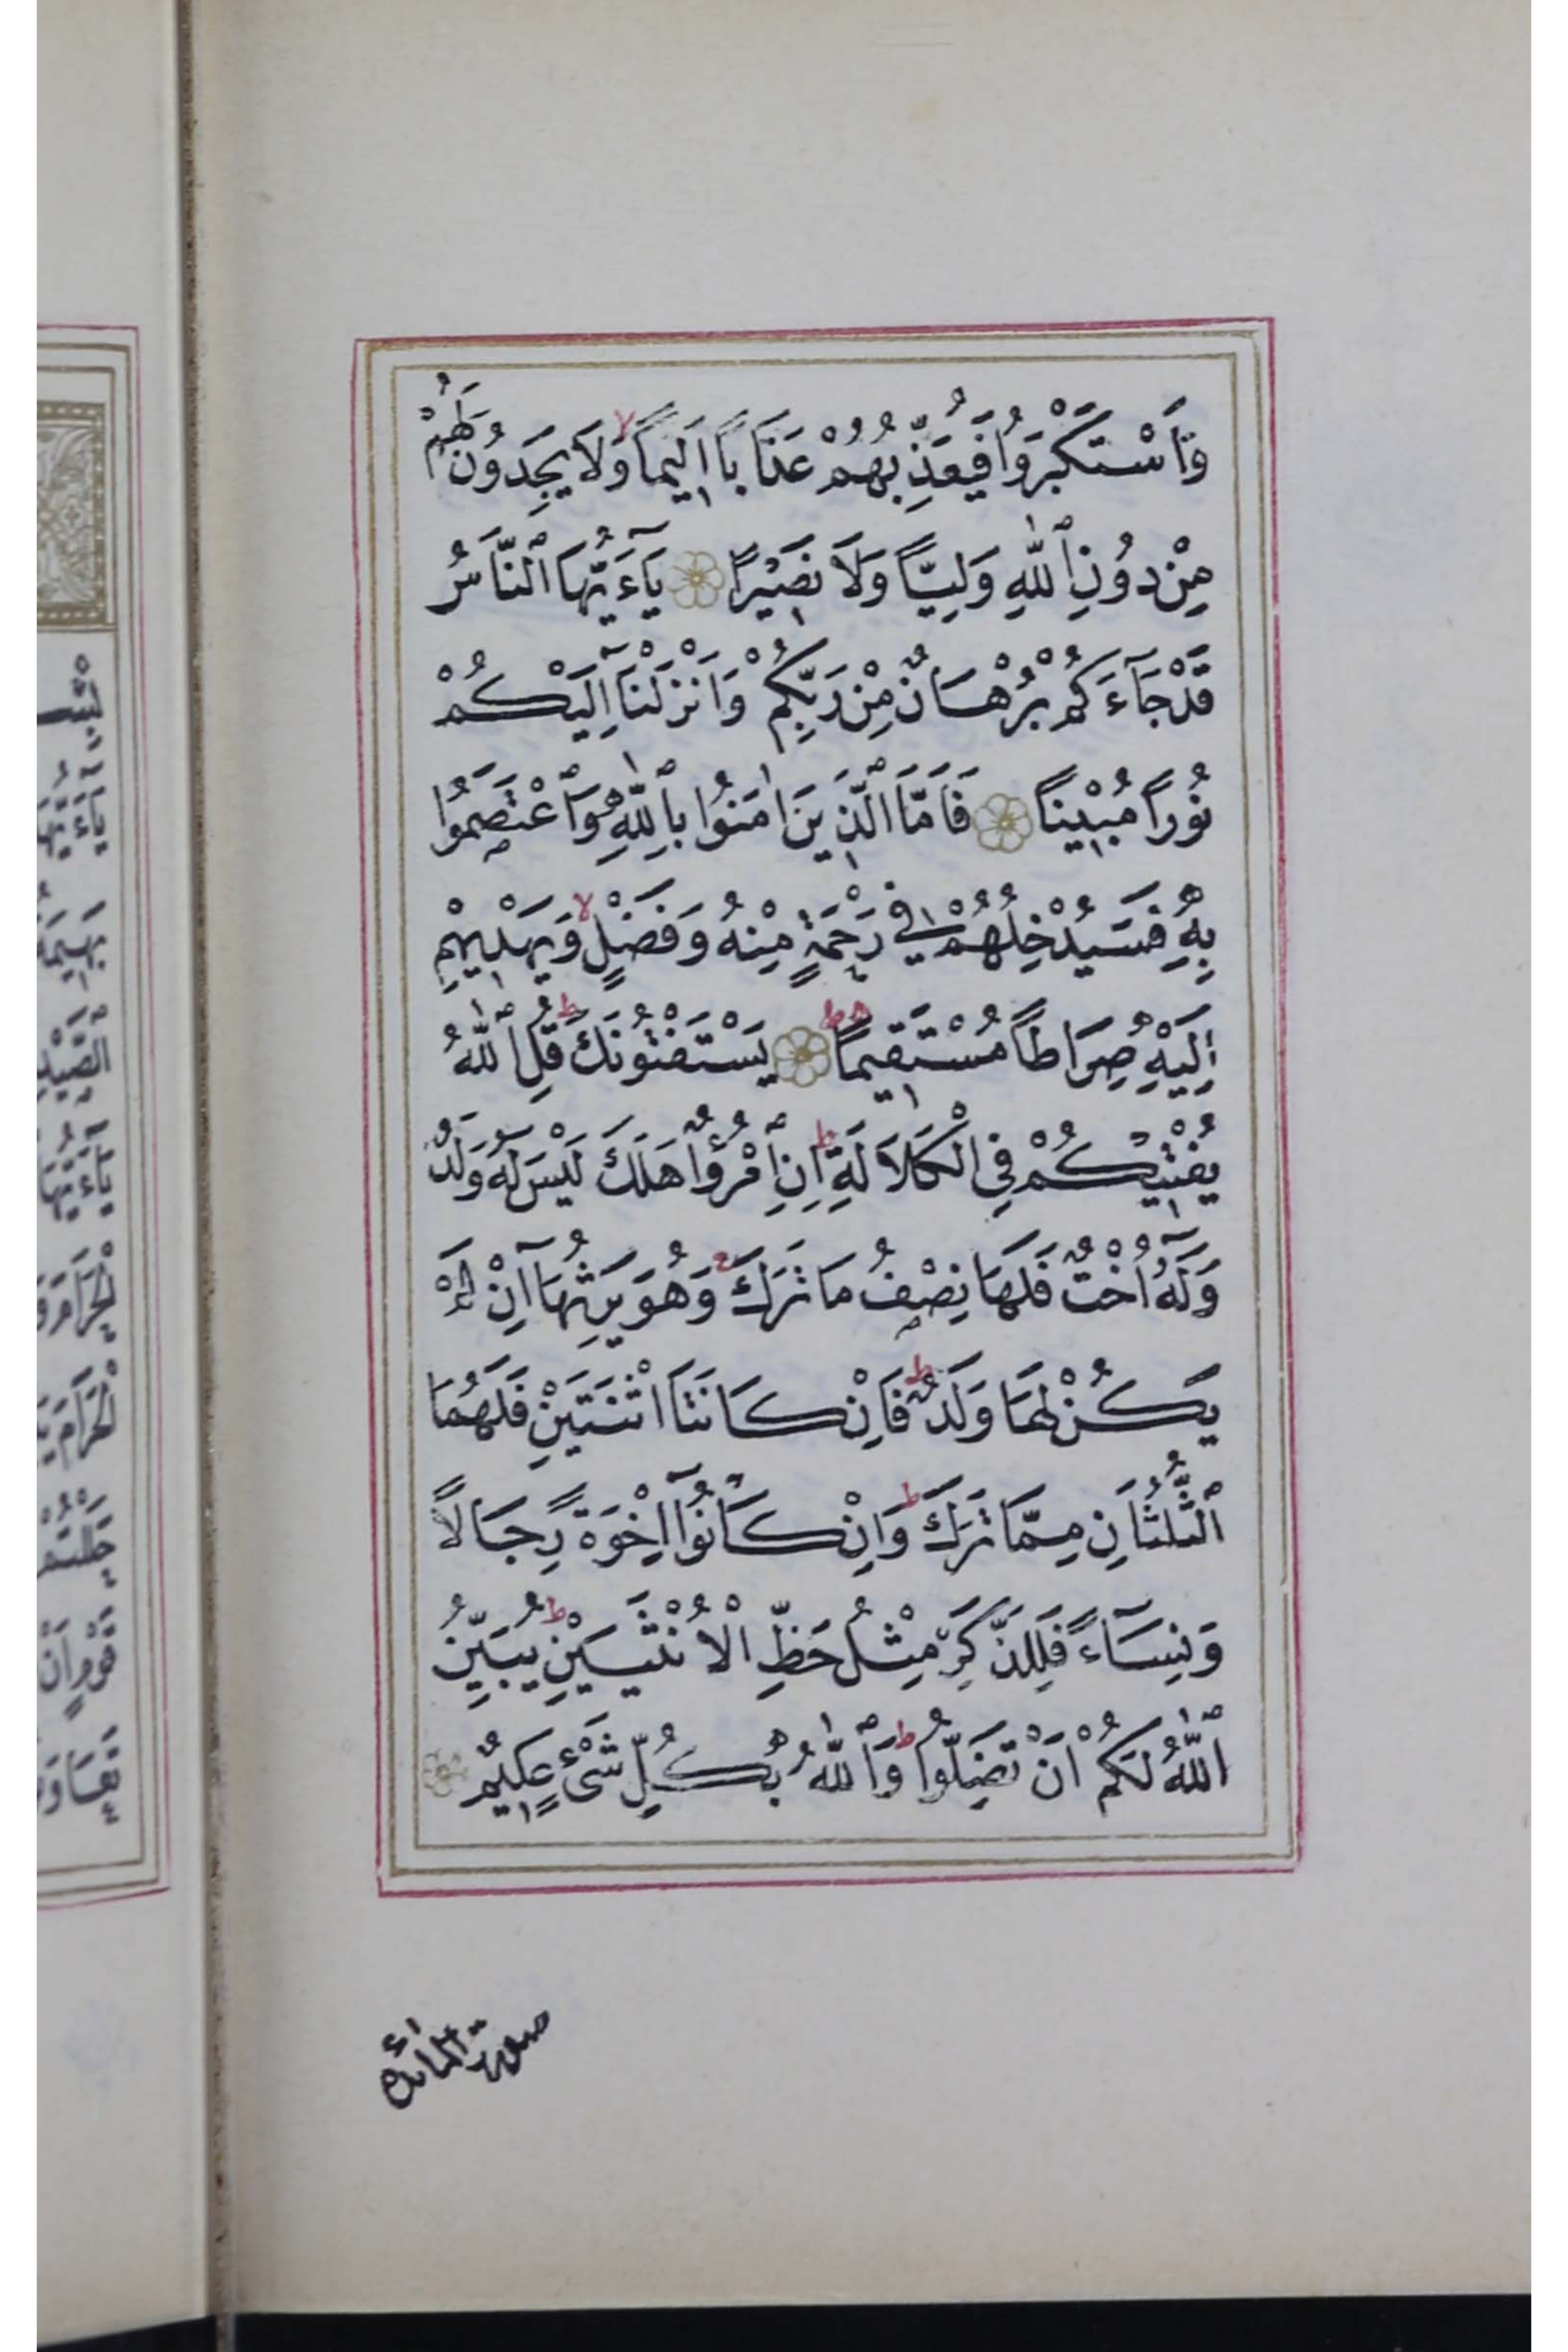 وَٱسْتَكْبَرُوا فَيُعَذِّبُهُمْ عَذَابًا اَلِيمًا وَلَا يَجِدُونَ لَهُمْ
مِنْ دُونِ ٱللّٰهِ وَلِيًّا وَلَا نَصِيْرًا يَآءَيُّهَا ٱلنَّاسُ
قَدْ جَآءَكُمْ بُرْهَانٌ مِنْ رَبِّكُمْ وَاَنْزَلْنَآ اِلَيْكُمْ
نُورًا مُبِيْنًا فَاَمَّا ٱلَّذِينَ اٰمَنُوا بِٱللّٰهِ وَٱعْتَصَمُوا
بِهِ فَسَيُدْخِلُهُمْ فِي رَحْمَةٍ مِنْهُ وَفَضْلٍ وَيَهْدِيهِمْ
اِلَيْهِ صِرَاطًا مُسْتَقِيمًا يَسْتَفْتُونَكَ قُلِ ٱللّٰهُ
يُفْتِيْكُمْ فِي الْكَلَالَةِ اِنِ ٱمْرُؤٌا هَلَكَ لَيْسَ لَهُ وَلَدٌ
وَلَهُٓ اُخْتٌ فَلَهَا نِصْفُ مَا تَرَكَ وَهُوَ يَرِثُهَآ اِنْ لَمْ
يَكُنْ لَهَا وَلَدٌ فَاِنْ كَانَتَا اثْنَتَيْنِ فَلَهُمَا
ٱلثُّلُثَانِ مِمَّا تَرَكَ وَاِنْ كَانُوٓا اِخْوَةً رِجَالًا
وَنِسَآءً فَلِلذَّكَرِ مِثْلُ حَظِّ الْاُنْثَيَيْنِ يُبَيِّنُ
ٱللّٰهُ لَكُمْ اَنْ تَضِلُّوا وَٱللّٰهُ بِكُلِّ شَىْءٍ عَلِيمٌ
سورة المائدة